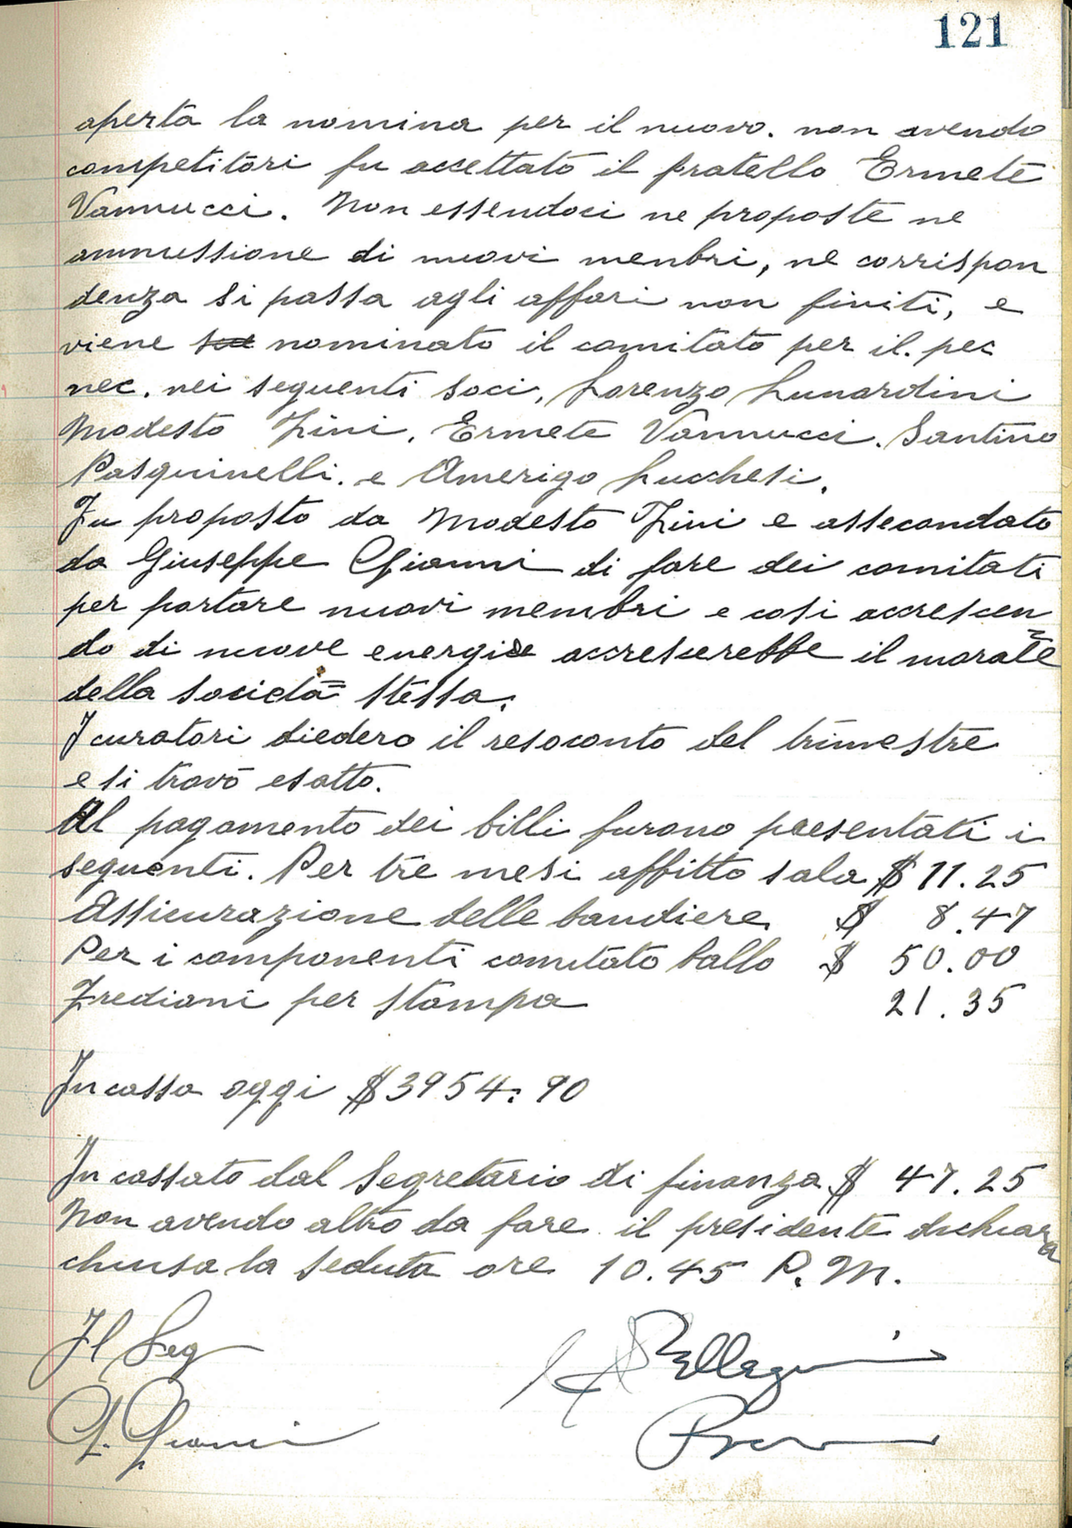 121
aperta la nomina per il nuovo. non avendo
competitori fu accettato il fratello Ermete
Vannucci. Non essendoci ne proposte ne
ammessione di nuovi menbri, ne corrispon
denza si passa agli affari non finiti, e
viene nominato il comitato per il. pec
nec. nei seguenti soci, Lorenzo Lunardini
Modesto Lini. Ermete Vannucci. Santino
Pasquinelli. e Amerigo Lucchesi.
Fu proposto da Modesto Lini e assecondato
da Giuseppe Gianni di fare dei comitati
per portare nuovi membri e cosi accrescen
do di nuove energie accrescerebbe il morale
della società stessa.
I curatori diedero il resoconto del trimestre
e si trovò esatto.
Al pagamento dei billi furono presentati i
seguenti. Per tre mesi affitto sala $ 11.25
Assicurazione delle bandiere $ 8.47
Per i componenti comitato ballo $ 50.00
Frediani per stampa 21.35
In cassa oggi $ 3954.90
In cassato dal Segretario di finanza $ 47.25
Non avendo altro da fare il presidente dichiara
chiusa la seduta ore 10.45 P.M.
Il Seg
G. Gianni
Pellegrini
Pres